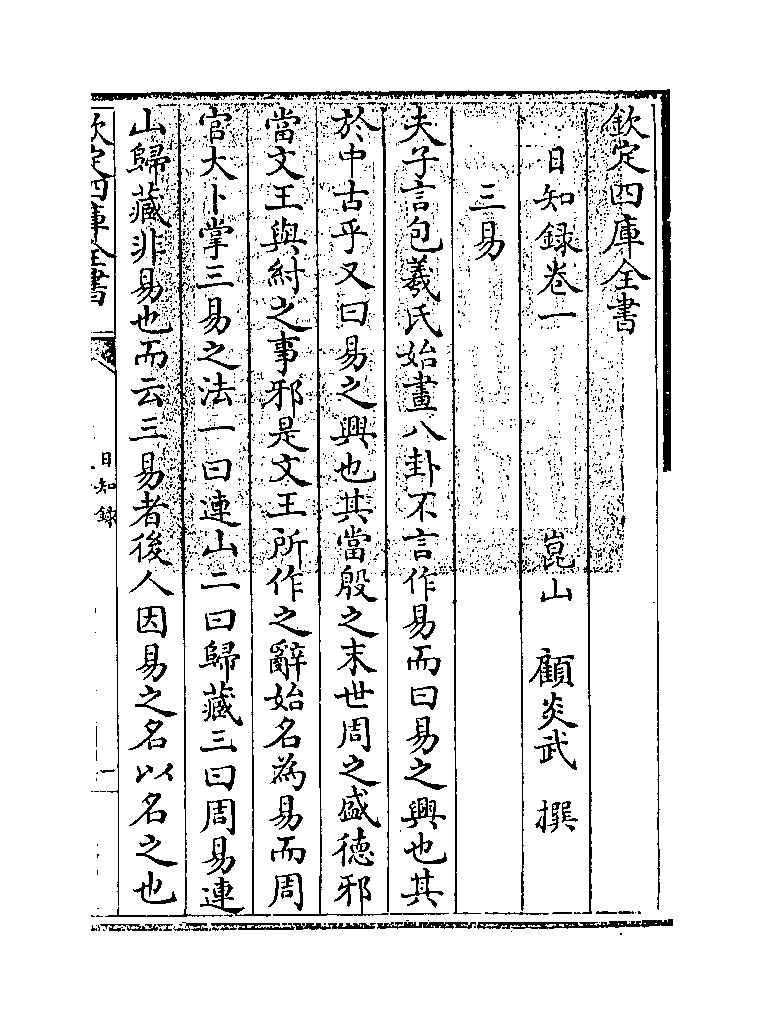 欽定四庫全書
日知錄卷一
崑山 顧炎武 撰
三易
夫子言包羲氏始畫八卦不言作易而曰易之興也其
於中古乎又曰易之興也其當殷之末世周之盛德邪
當文王與紂之事邪是文王所作之辭始名為易而周
官大卜掌三易之法一曰連山二曰歸藏三曰周易連
山歸藏非易也而云三易者後人因易之名以名之也
欽定四庫全書
日知錄
一